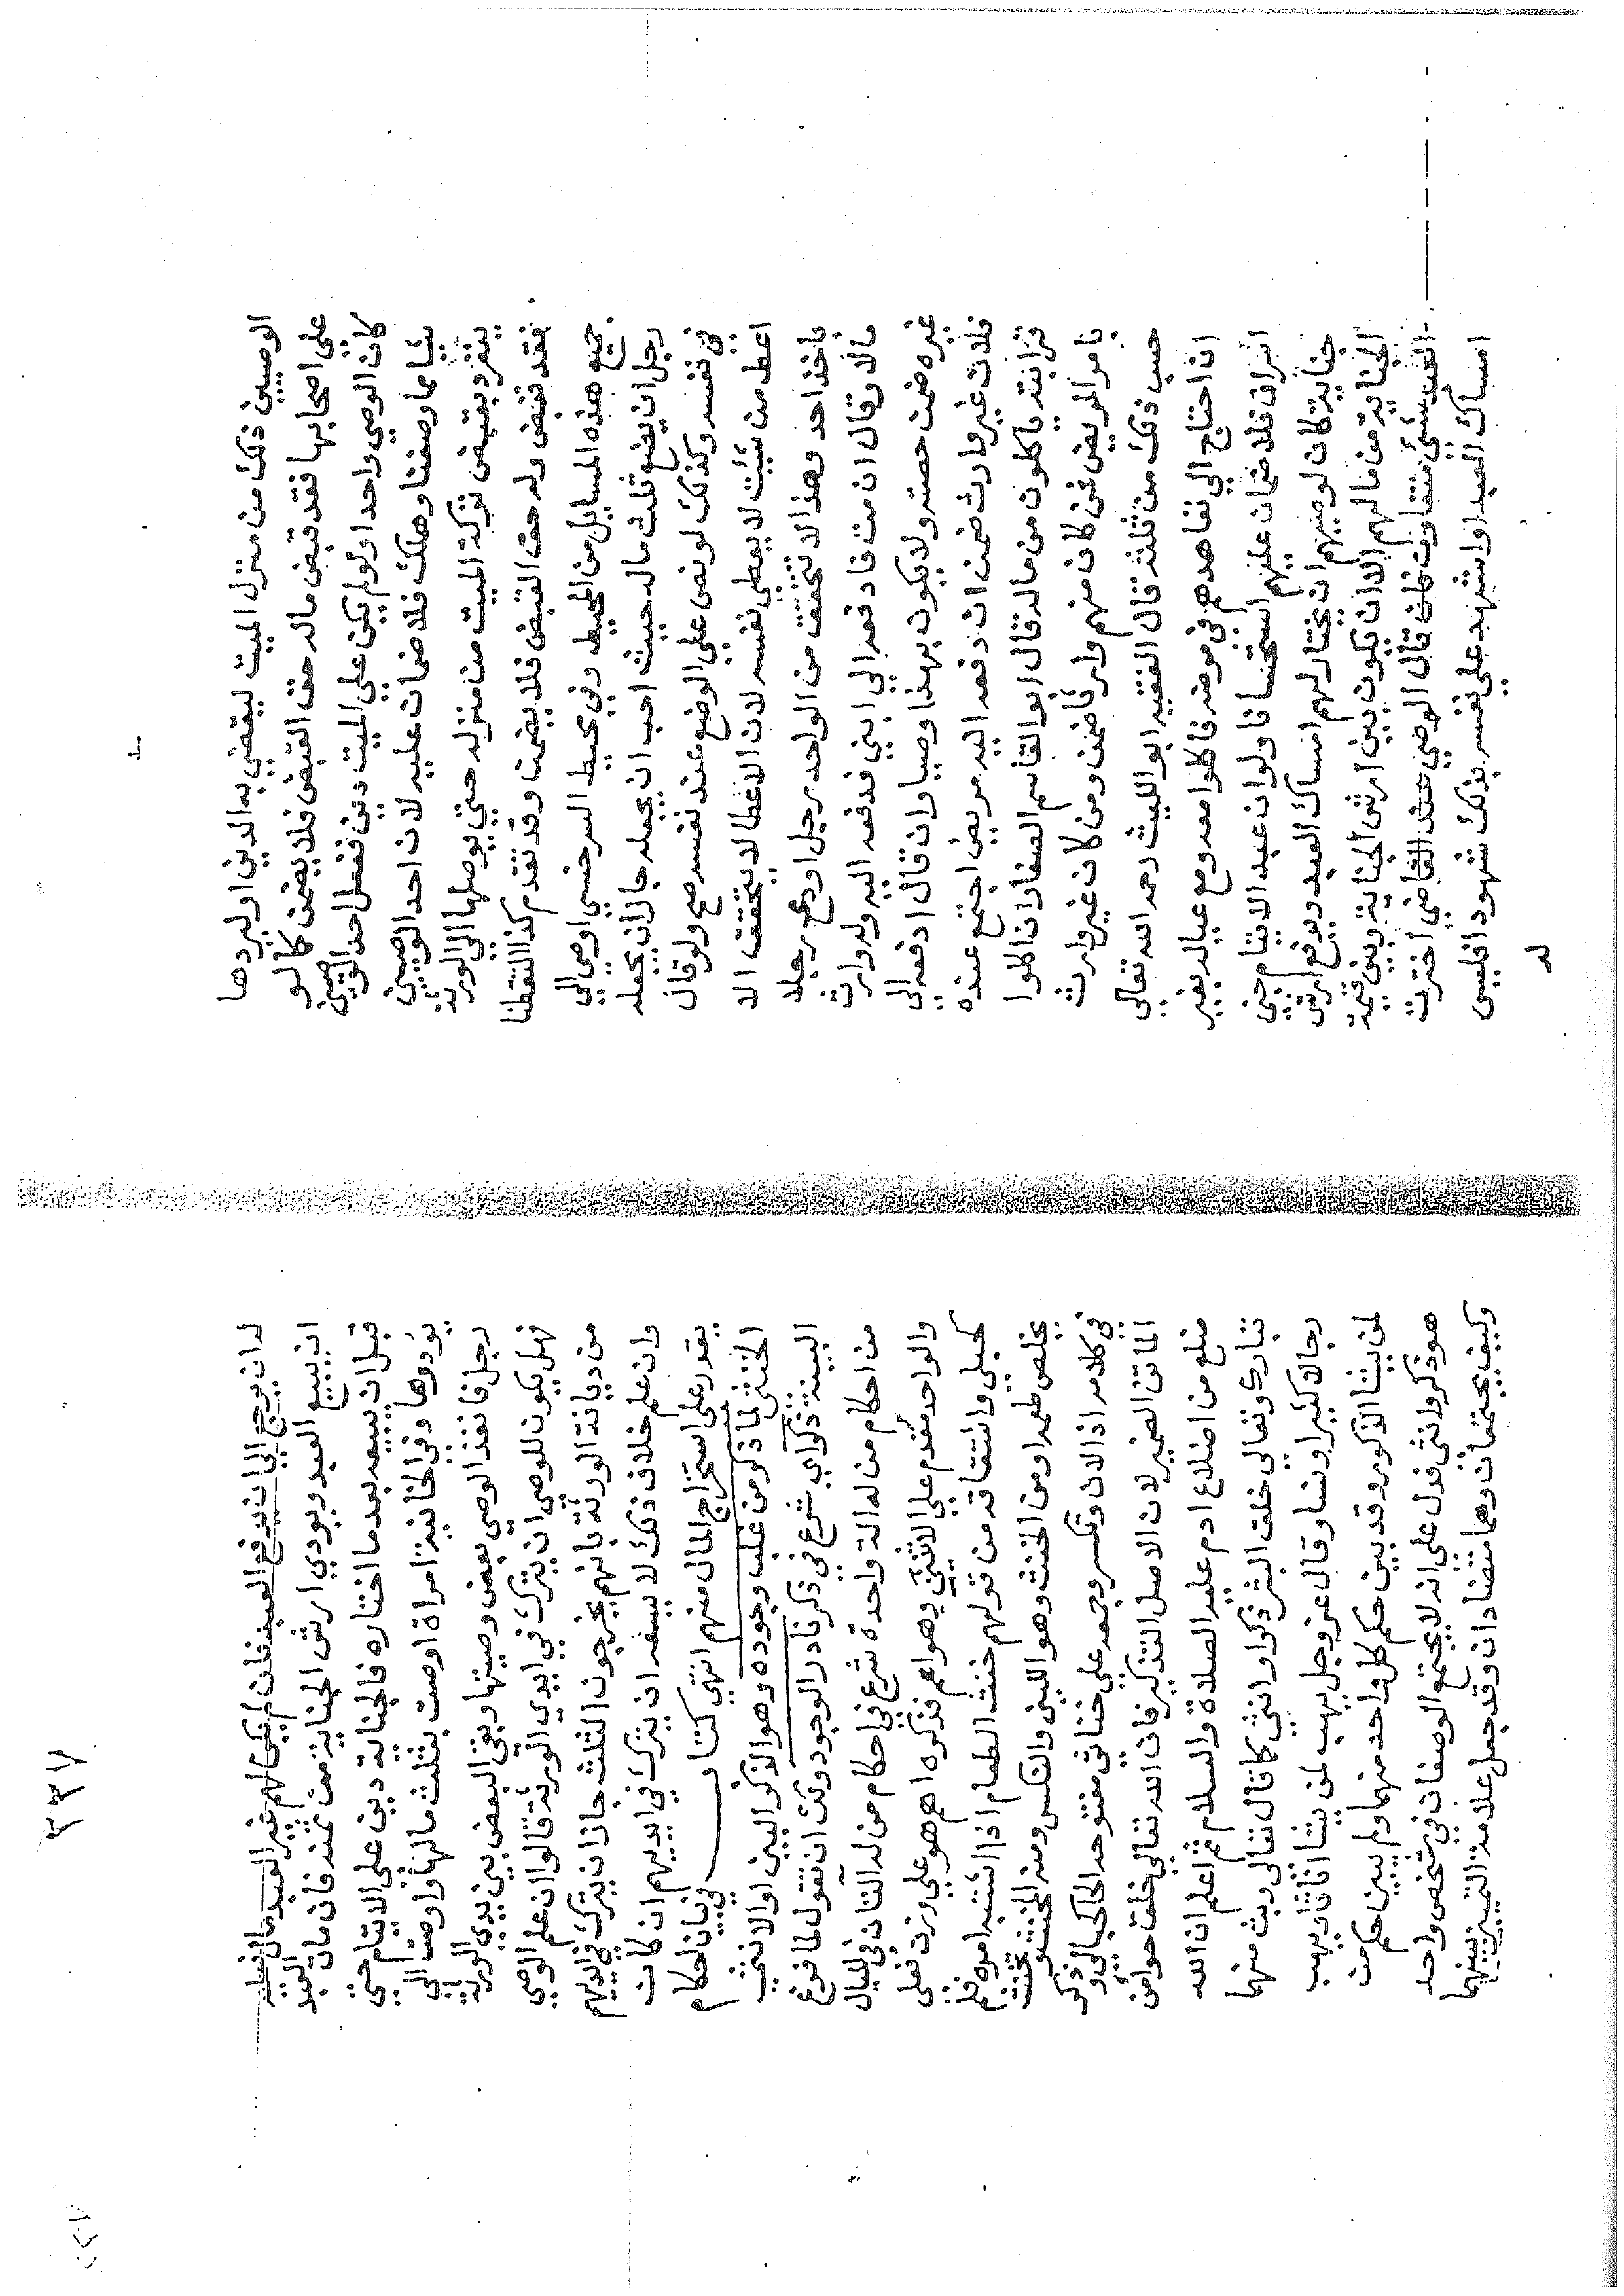 الوصيين ذلك من منزل الميت ليقضي به الدين او ليردها
علي اصحابها فقد قبض ماله حق القبض فلا يضمن كما لو
كان الوصي واحدا ولو لم يكن علي الميت دين ففعل احد الوصيين
شيا مما وصفنا وهلك فلا ضمان عليه لان احد الوصيين
ينفرد بقبض تركة الميت من منزله حتي يوصلها الي الورثة
فقد قبض وله حق القبض فلا يضمن وقد تقدم كذا التقطنا
جميع هذه المسايل من المحيط وفي محيط السرخسي اوصي الي
رجل ان يضع ثلث ماله حيث احب ان يجعله جاز ان يجعله
في نفسه وكذلك لو نص علي الوضع عند نفسه صح ولو قال
اعط من شيت لا يعطي نفسه لان الاعطا لا يتحقق الا
باخذ احد وهذا لا يتحقق من الواحد رجل اودع رجلا
مالا وقال ان مت فادفعه الي ابني فدفعه اليه وله وارث
غيره ضمن حصته ولا يكون بهذا وصيا وان قال ادفعه الي
فلان غير وارث ضمن ان دفعه اليه مريض اجتمع عنده
قرابته ياكلون من ماله قال ابو القاسم الصفار ان اكلوا
بامر المريض فمن كان منهم وارثا ضمن ومن كان غير وارث
حسب ذلك من ثلثه قال الفقيه ابو الليث رحمه الله تعالي
ان احتاج الي تعاهدهم في مرضه فاكلوا معه ومع عياله بغير
اسراف فلا ضمان عليهم استحسانا ولو ان عبد الايتام جني
جناية كان لوصيهم ان يختار لهم امساك العبد ويدفع ارش
الجناية من مالهم الا ان يكون بين ارش الجناية وبين قيمة
العبد شي متفاوت فان قال الوصي عند القاضي اخترت
امساك العبد او اشهد علي نفسه بذلك شهودا فليس
له
٣٣٧
له ان يرجع الي ان يدفع العبد فان لم يكن لهم غير العبد مال فعليه
ان يبيع العبد ويودي ارش الجناية من ثمنه فان مات العبد
قبل ان يبيعه بعد ما اختاره فالجناية دين علي الايتام حتي
يودوها وفي الخانية امراة اوصت بثلث مالها واوصت الي
رجل فانفذ الوصي بعض وصيتها وبقي البعض بين يدي الورثة
فهل يكون للوصي ان يترك في ايدي الورثة قالوا ان علم الوصي
من ديانة الورثة بانهم يخرجون الثلث جاز ان يترك في ايديهم
وان علم خلاف ذلك لا يسعه ان يترك في ايديهم ان كان
يقدر علي استخراج المال منهم انتهي كتاب في بيان احكام
الخنثي لما ذكر من غلب وجوده وهو الذكر البين او الانثي
البينة ذكر اي شرع في ذكر نادر الوجود ولك ان تقول لما فرغ
من احكام من له الة واحدة شرع في احكام من له التان
والواحد مقدم علي الاثنين وهو اهم فذكره اهم هو علي وزن فعلي
كحبلي واشتقاقه من قولهم خنث الطعام اذا اشتبه امره فلم
يخلص طعمه او من الخنث وهو اللين والتكسر ومنه المخنث
في كلامه اذا لان وتكسر وجمعه علي خناثي مفتوحة كحبالي وذكر
الماتن الضمير لان الاصل التذكير فان الله تعالي خلق حوا من
ضلع من اضلاع ادم عليه الصلاة والسلام ثم اعلم ان الله
تبارك وتعالي خلق البشر ذكرا وانثي كما قال تعالي وبث منهما
رجالا كثيرا ونسا وقال عز وجل يهب لمن يشا اناثا ويهب
لمن يشا الذكور وقد بين حكم كل واحد منهما ولم يبين حكم من
هو ذكر وانثي فدل علي انه لا يجتمع الوصفان في شخص واحد
وكيف يجتمعان وهما متضادان وقد جعل علامة التمييز بينهما